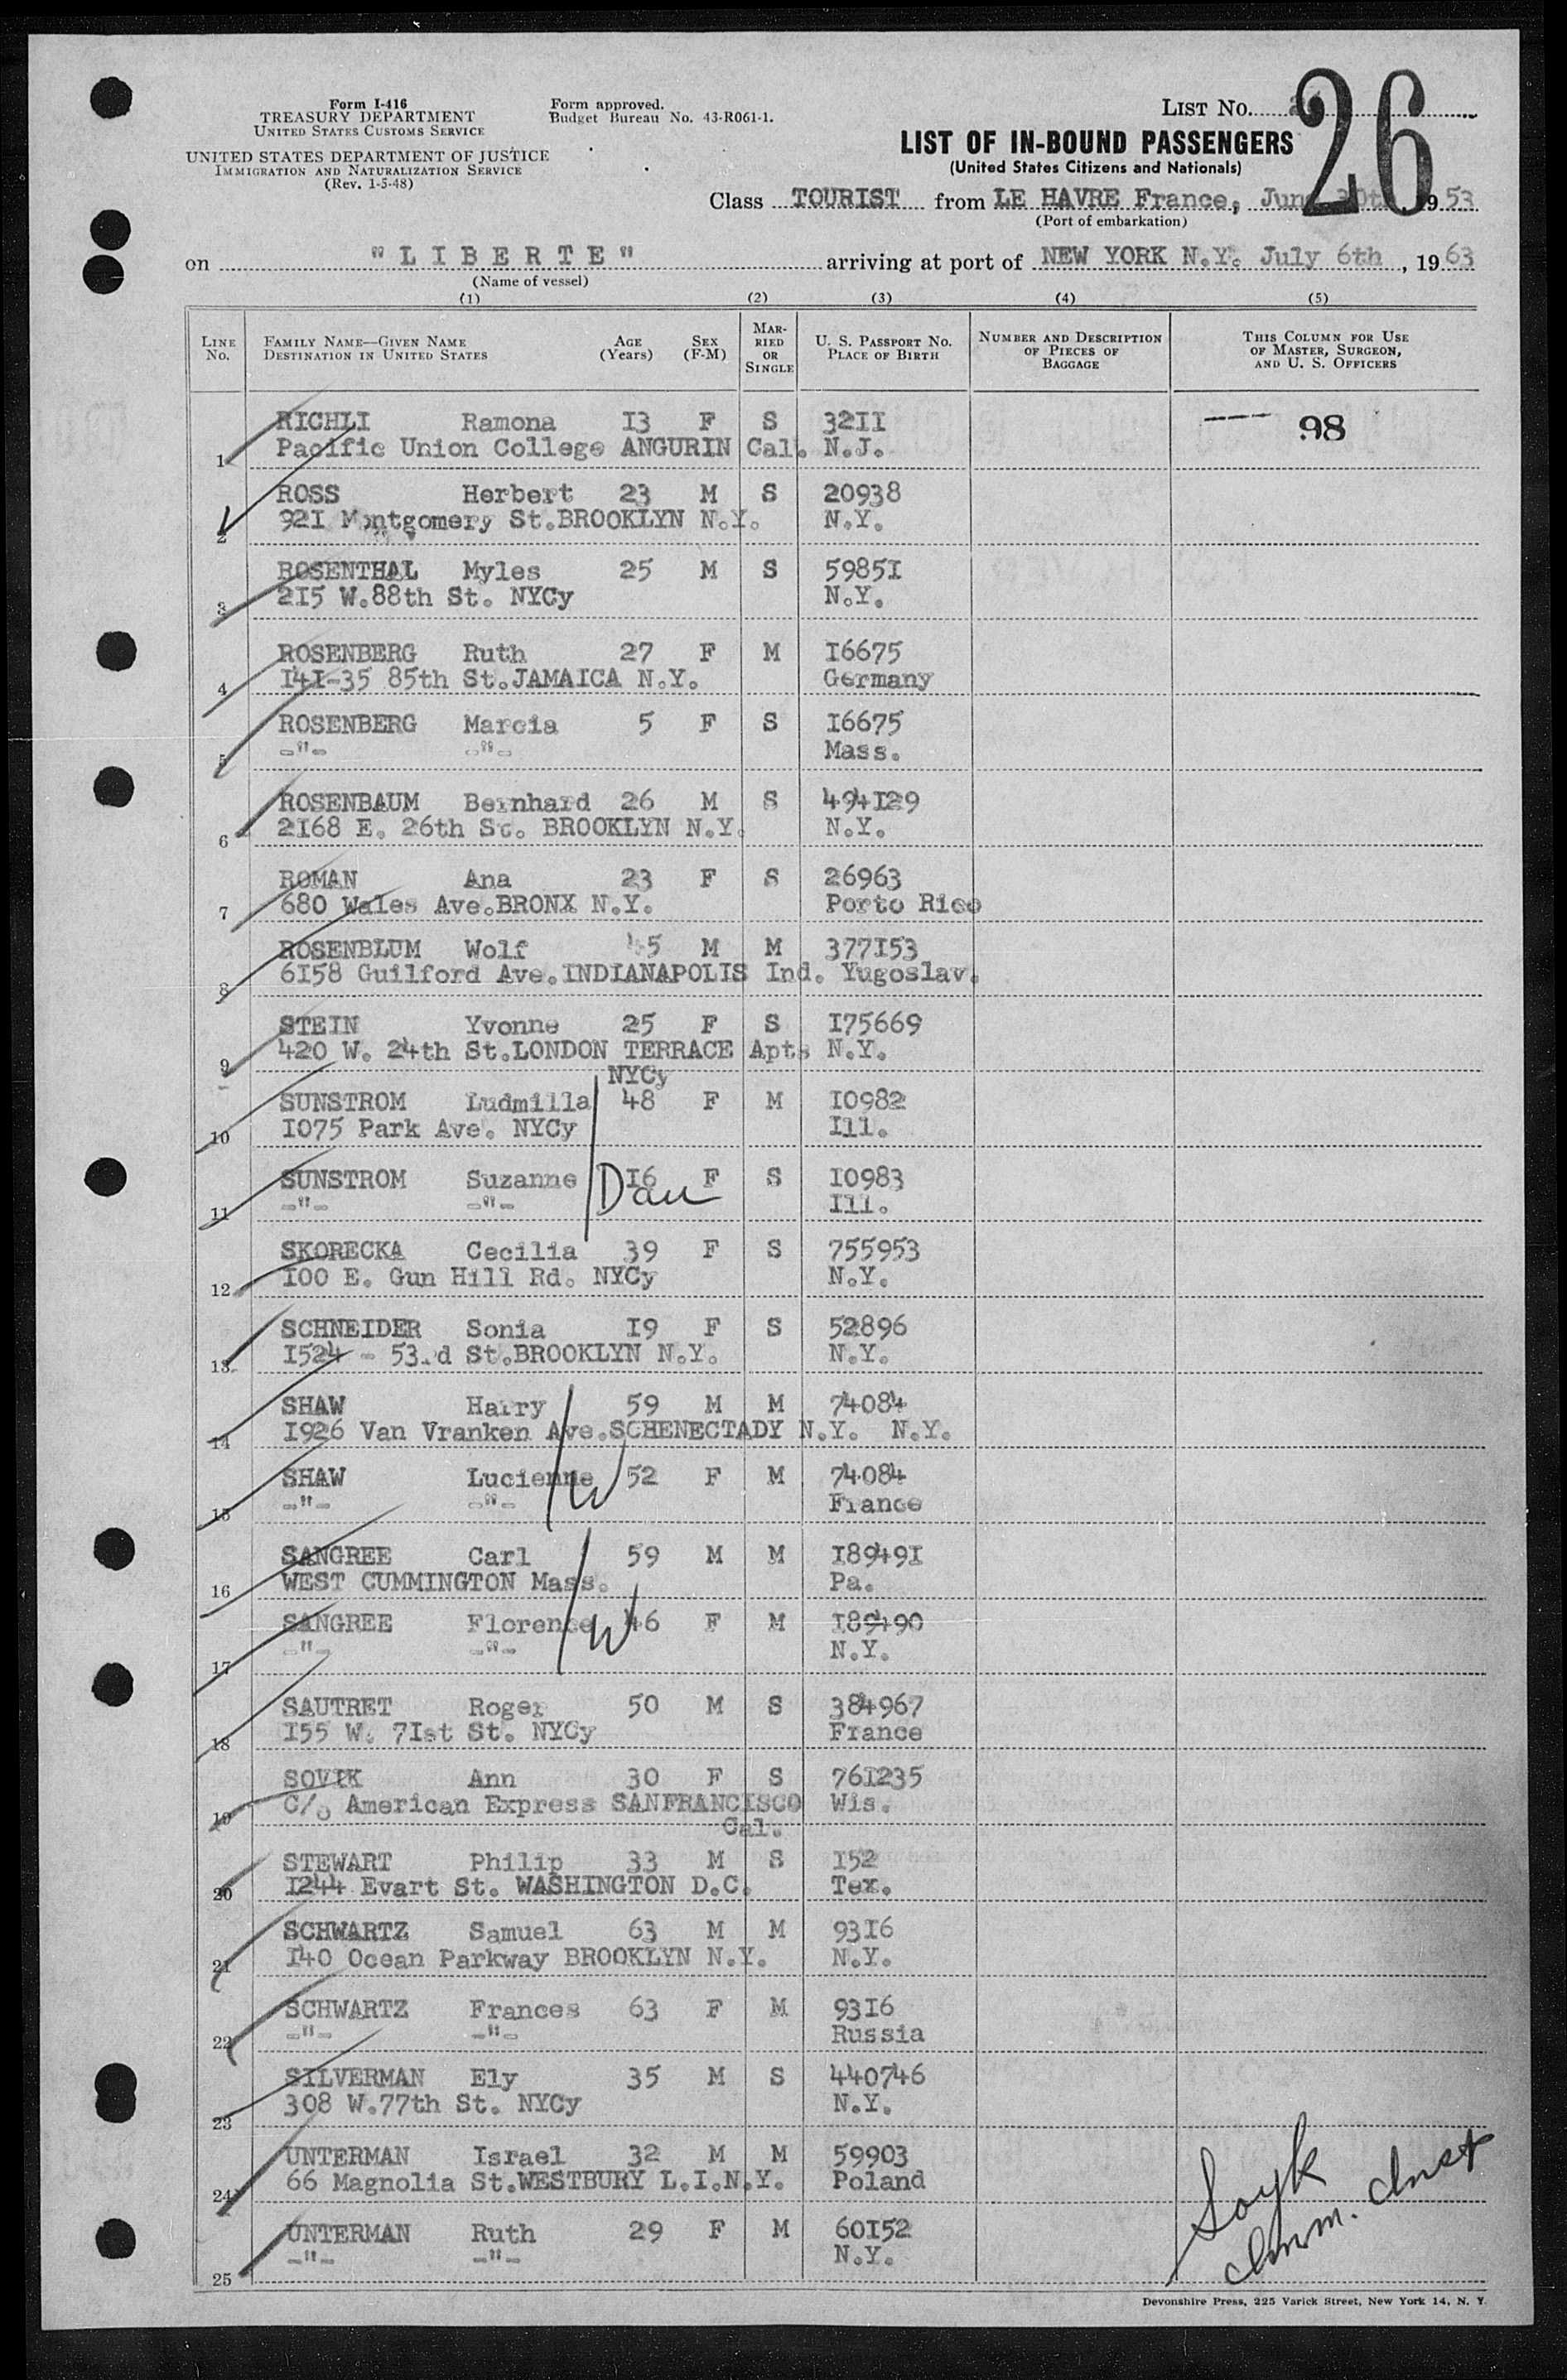 Form I-416
TREASURY DEPARTMENT
UNITED STATES CUSTOMS SERVICE
UNITED STATES DEPARTMENT OF JUSTICE
IMMIGRATION AND NATURALIZATION SERVICE
(Rev. 1-5-48)
Form approved.
Budget Bureau No. 43-R061-1.
LIST No.
26
LIST OF IN-BOUND PASSENGERS
(United States Citizens and Nationals)
Class TOURIST from LE HAVRE France, June 30th, 1953
(Port of embarkation)
on "LIBERTE" arriving at port of NEW YORK N.Y. July 6th, 1963
(Name of vessel)
(1) (2) (3) (4) (5)
LINE No. FAMILY NAME—GIVEN NAME DESTINATION IN UNITED STATES AGE (Years) SEX (F-M) MARRIED OR SINGLE U. S. PASSPORT No. PLACE OF BIRTH NUMBER AND DESCRIPTION OF PIECES OF BAGGAGE THIS COLUMN FOR USE OF MASTER, SURGEON, AND U. S. OFFICERS
RICHLI Ramona I3 F S 32II 98
1 Pacific Union College ANGURIN Cal. N.J.
ROSS Herbert 23 M S 20938
2 92I Montgomery St.BROOKLYN N.Y. N.Y.
ROSENTHAL Myles 25 M S 5985I
3 2I5 W.88th St. NYCy N.Y.
ROSENBERG Ruth 27 F M I6675
4 I4I-35 85th St.JAMAICA N.Y. Germany
ROSENBERG Marcia 5 F S I6675
5 -"- -"- Mass.
ROSENBAUM Bernhard 26 M S 494I29
6 2I68 E. 26th St. BROOKLYN N.Y. N.Y.
ROMAN Ana 23 F S 26963
7 680 Wales Ave.BRONX N.Y. Porto Rico
ROSENBLUM Wolf 45 M M 377I53
8 6I58 Guilford Ave.INDIANAPOLIS Ind. Yugoslav.
STEIN Yvonne 25 F S I75669
9 420 W. 24th St.LONDON TERRACE Apts N.Y.
NYCy
SUNSTROM Ludmilla 48 F M I0982
10 I075 Park Ave. NYCy Ill.
SUNSTROM Suzanne I6 F S I0983
Dau
11 -"- -"- Ill.
SKORECKA Cecilia 39 F S 755953
12 I00 E. Gun Hill Rd. NYCy N.Y.
SCHNEIDER Sonia I9 F S 52896
13 I524 - 53rd St.BROOKLYN N.Y. N.Y.
SHAW Harry 59 M M 74084
14 I926 Van Vranken Ave.SCHENECTADY N.Y. N.Y.
SHAW Lucienne 52 F M 74084
W
15 -"- -"- France
SANGREE Carl 59 M M I8949I
16 WEST CUMMINGTON Mass. Pa.
SANGREE Florence 46 F M I89490
W
17 -"- -"- N.Y.
SAUTRET Roger 50 M S 384967
18 I55 W. 7Ist St. NYCy France
SOVIK Ann 30 F S 76I235
19 C/o American Express SANFRANCISCO Wis.
Cal.
STEWART Philip 33 M S I52
20 I244 Evart St. WASHINGTON D.C. Tex.
SCHWARTZ Samuel 63 M M 93I6
21 I40 Ocean Parkway BROOKLYN N.Y. N.Y.
SCHWARTZ Frances 63 F M 93I6
22 -"- -"- Russia
SILVERMAN Ely 35 M S 440746
23 308 W.77th St. NYCy N.Y.
UNTERMAN Israel 32 M M 59903
24 66 Magnolia St.WESTBURY L.I.N.Y. Poland
UNTERMAN Ruth 29 F M 60I52
25 -"- -"- N.Y.
Imm. Inst
Devonshire Press, 225 Varick Street, New York 14, N. Y.